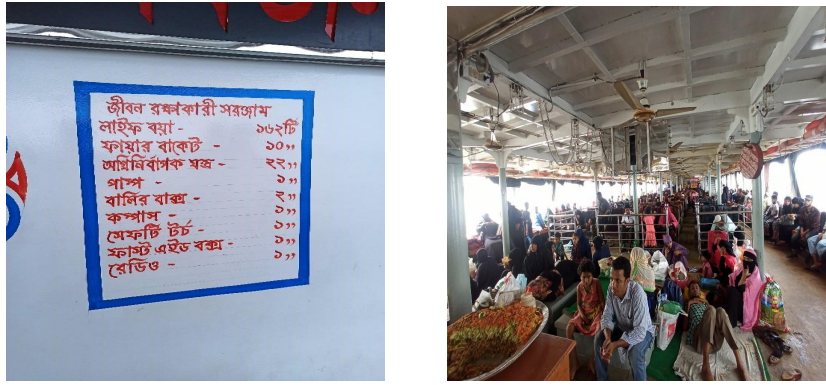 জীবন রক্ষাকারী সরঞ্জাম
লাইফ বয়া - ১৬২টি
ফায়ার বাকেট - ১০,,
অগ্নিনির্বাপক যন্ত্র - ২২,,
পাম্প - ১,,
বালির বাক্স - ২,,
কম্পাস - ১,,
সেফটি টর্চ - ১,,
ফাস্ট এইড বক্স - ১,,
রেডিও - ১,,